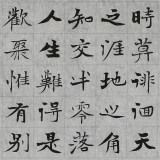 時莫徘徊天
之涯地之角
知交半零落
人生難得是
歡聚惟有別